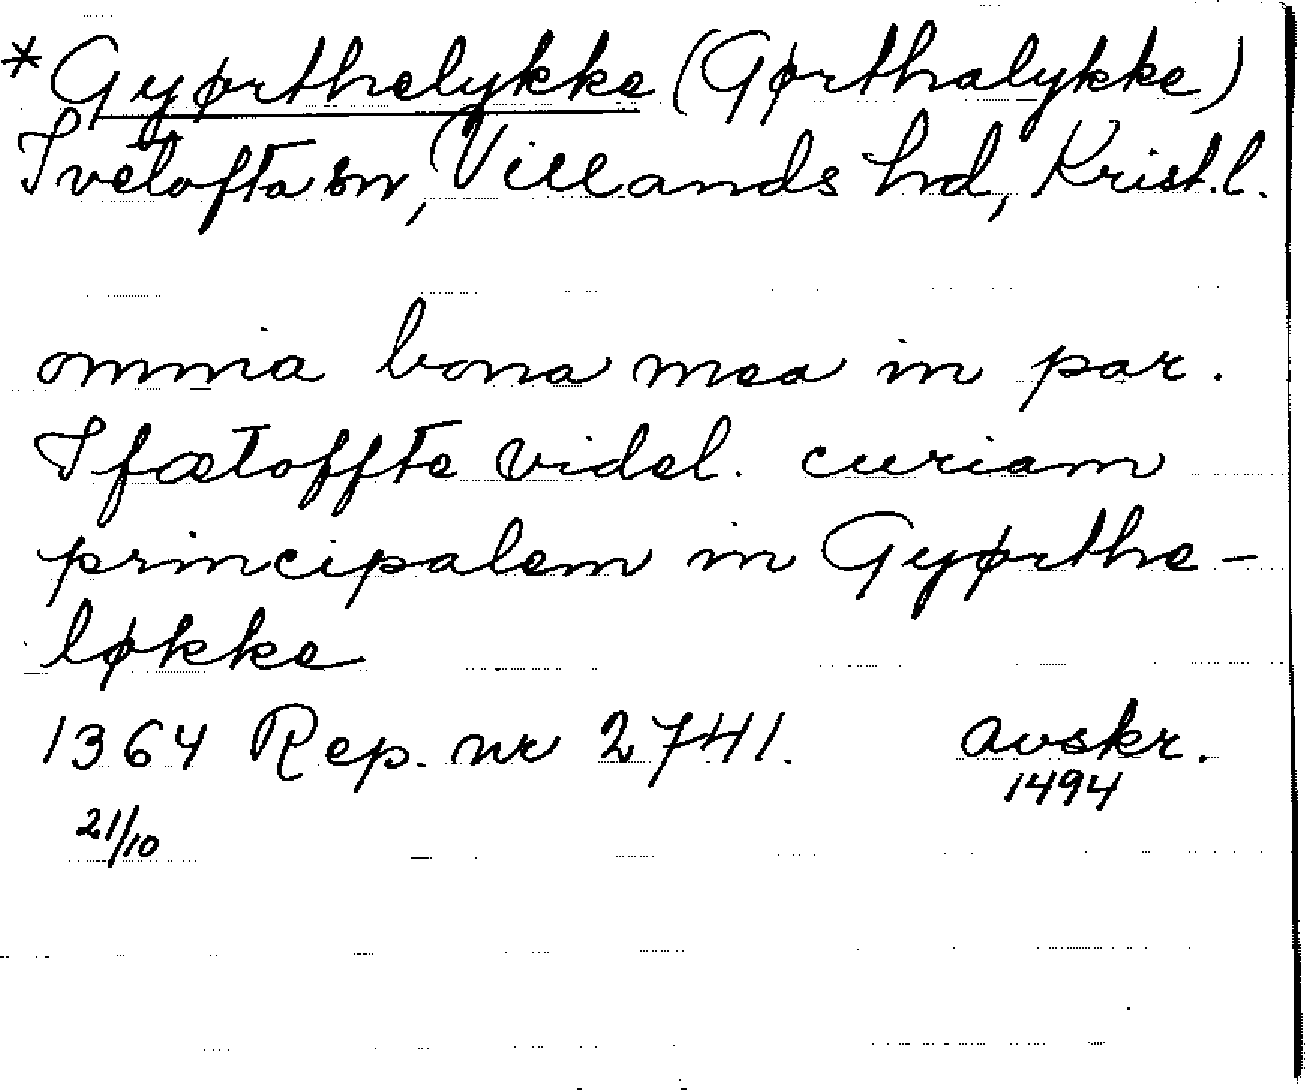 *Gyørthelykke (Gørthalykke)
Ivetofta sn, Villands hd, Krist.l.
omnia bona mea in par.
Ifætoffte videl. curiam
principalem in Gyørthe-
løkke
1364 Rep. nr 2741. avskr.
21/10 1494